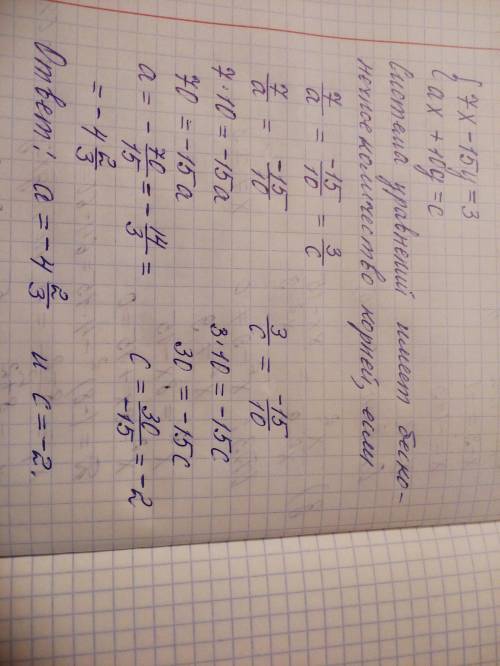 { 7x - 15y = 3
ax + 10y = c
Система уравнений имеет беско-
нечное количество корней, если
7/a = -15/10 = 3/c
7/a = -15/10    3/c = -15/10
7·10 = -15a    3·10 = -15c
70 = -15a    30 = -15c
a = -70/15 = -14/3 =    c = 30/-15 = -2
= -4 2/3
Ответ: a = -4 2/3 и c = -2.